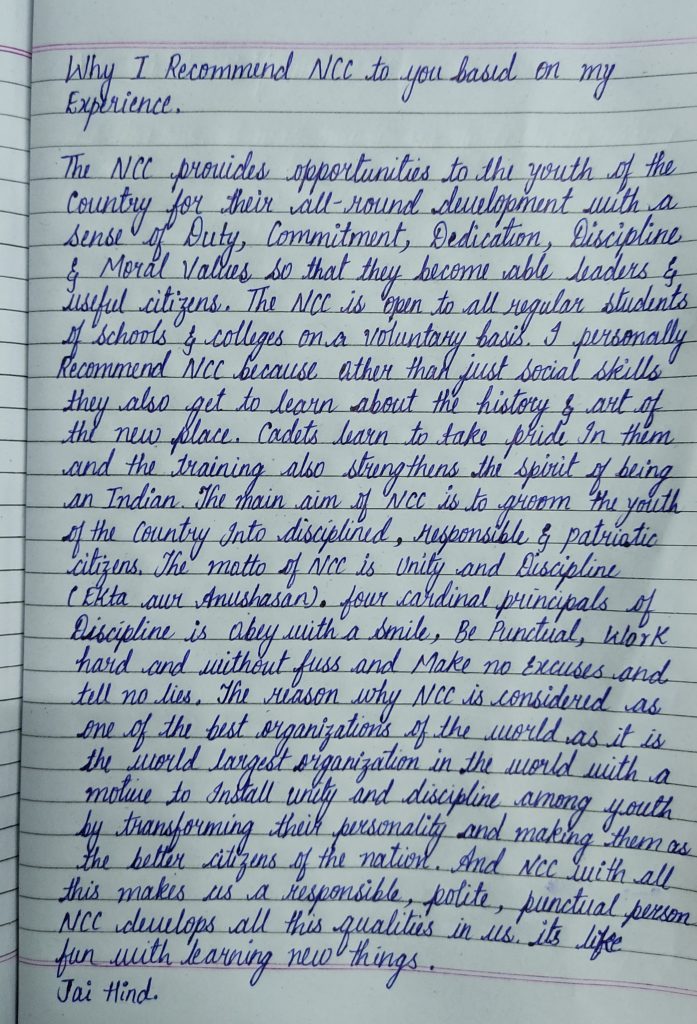 Why I Recommend NCC to you based on my
Experience.
The NCC provides opportunities to the youth of the
Country for their all-round development with a
sense of Duty, Commitment, Dedication, Discipline
& Moral Values so that they become able leaders &
useful citizens. The NCC is open to all regular students
of schools & colleges on a voluntary basis. I personally
Recommend NCC because other than just social skills
they also get to learn about the history & art of
the new place. Cadets learn to take pride In them
and the training also strengthens the spirit of being
an Indian. The main aim of NCC is to groom the youth
of the Country Into disciplined, responsible & patriotic
citizens. The motto of NCC is Unity and Discipline
(Ekta aur Anushasan). four cardinal principals of
Discipline is obey with a smile, Be Punctual, Work
hard and without fuss and Make no Excuses and
tell no lies. The reason why NCC is considered as
one of the best organizations of the world as it is
the world largest organization in the world with a
motive to Install unity and discipline among youth
by transforming their personality and making them as
the better citizens of the nation. And NCC with all
this makes us a responsible, polite, punctual person
NCC develops all this qualities in us. its life
fun with learning new things.
Jai Hind.